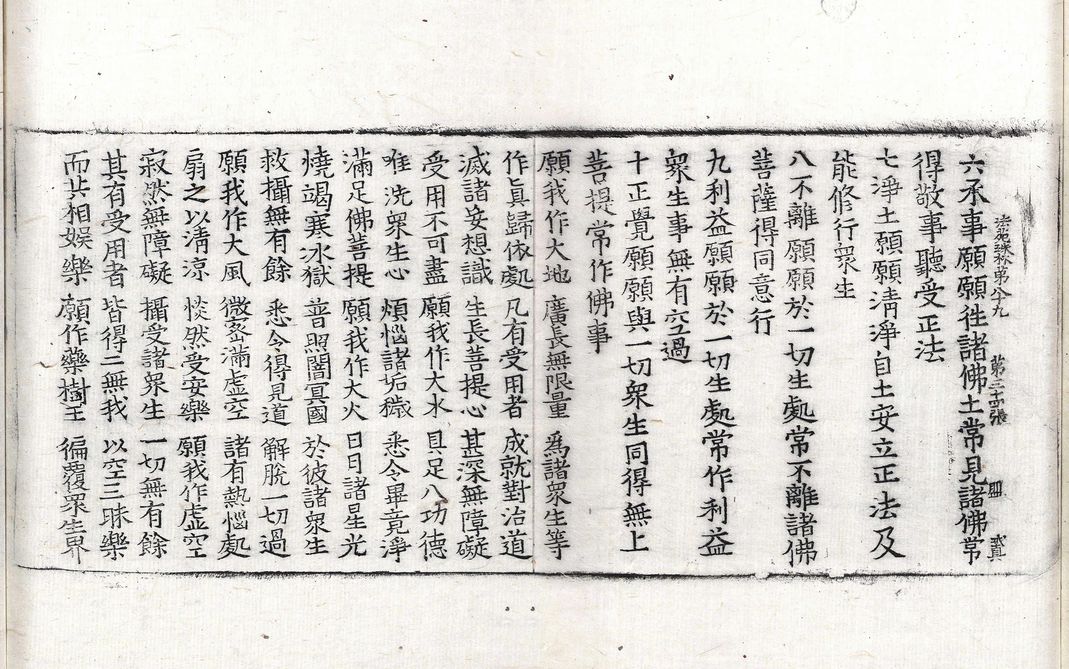 六承事願願徃諸佛土常見諸佛常
得敬事聽受正法
七淨土願願清淨自土安立正法及
能修行衆生
八不離願願於一切生處常不離諸佛
菩薩得同意行
九利益願願於一切生處常作利益
衆生事無有空過
十正覺願願與一切衆生同得無上
菩提常作佛事
願我作大地 廣長無限量 爲諸衆生等
作眞歸依處 凡有受用者 成就對治道
滅諸妄想識 生長菩提心 甚深無障礙
受用不可盡 願我作大水 具足八功德
唯洗衆生心 煩惱諸垢穢 悉令畢竟淨
滿足佛菩提 願我作大火 日日諸星光
燒竭寒冰獄 普照闇冥國 於彼諸衆生
救攝無有餘 悉令得見道 解脫一切過
願我作大風 微密滿虛空 諸有熱惱處
扇之以清涼 惔然受安樂 願我作虛空
寂然無障礙 攝受諸衆生 一切無有餘
其有受用者 皆得二無我 以空三昧樂
而共相娛樂 願作藥樹王 徧覆衆生界